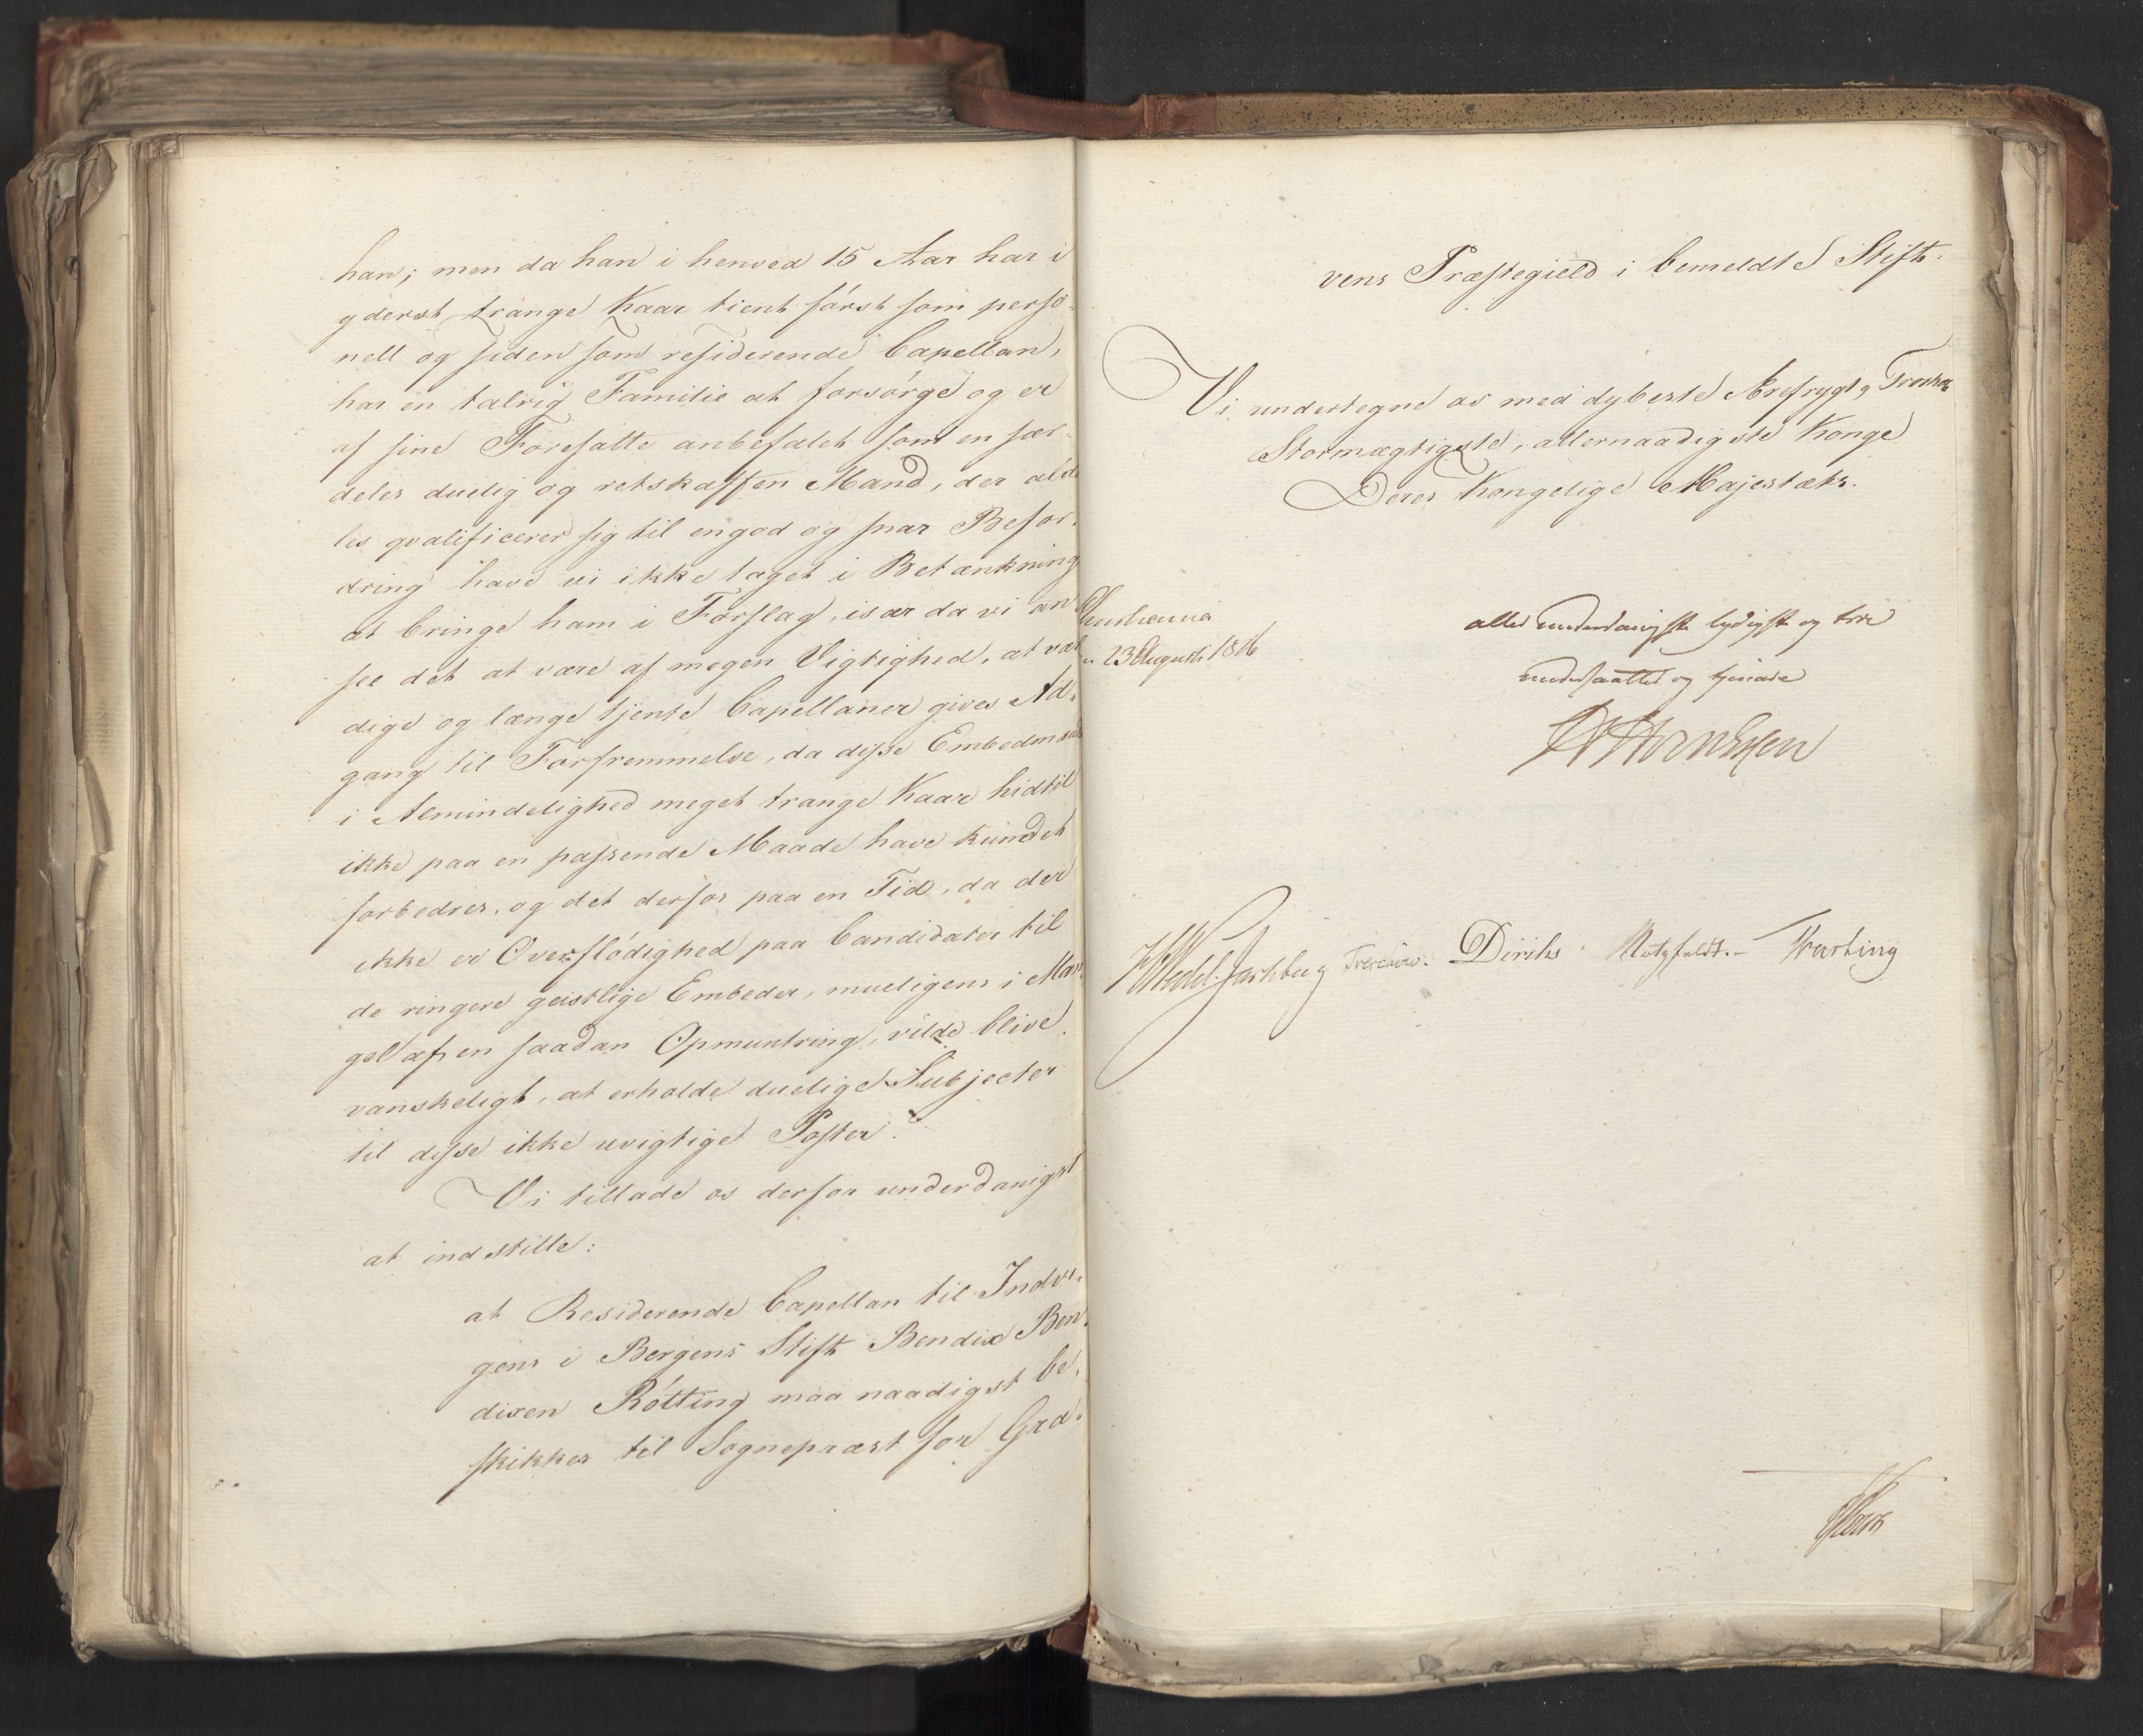 han; men da han i henved 15 Aar har i
yderst trange Kaar tient først som perso-
nell og siden som residerende Capellan,
har en talrig Familie at forsørge og er
af sine Foresatte anbefalet som en sær-
deles duelig og retskaffen Mand, der alde-
les qvalificerer sig til en god og snar Befor-
dring have vi ikke taget i Betænkning
at bringe ham i Forslag, især da vi an-
see det at være af megen Vigtighed, at vær-
dige og længe tjente Capellaner gives Ad-
gang til Forfremmelse, da disse Embedmænds
i Almindelighed meget trange Kaar hidtil
ikke paa en passende Maade have kundet
forbedres, og det derfor paa en Tid, da der
ikke er Overflødighed paa Candidater til
de ringere geistlige Embeder, mueligens i Man-
gel af en saadan Opmuntring, vilde blive
vanskeligt, at erholde duelige Subjecter
til disse ikke uvigtige Poster.
Vi tillade os derfor underdanigst
at indstille:
at Residerende Capellan til Indvi-
gens i Bergens Stift Bendix Ben-
dixen Rötting maa naadigst be-
skikkes til Sognepræst for Gra-
vens Præstegield i bemeldte Stift.
Vi undertegne os med dybeste Ærefrygt, Troskab
Stormægtigste, allernaadigste Konge
Deres Kongelige Majestæts.
Christiania
23 Augusti 1816
aller underdanigste lydigste og troe
undersaatter og tjenere
Wedel Jarlsberg Treschow. Diriks Motzfeldt.-